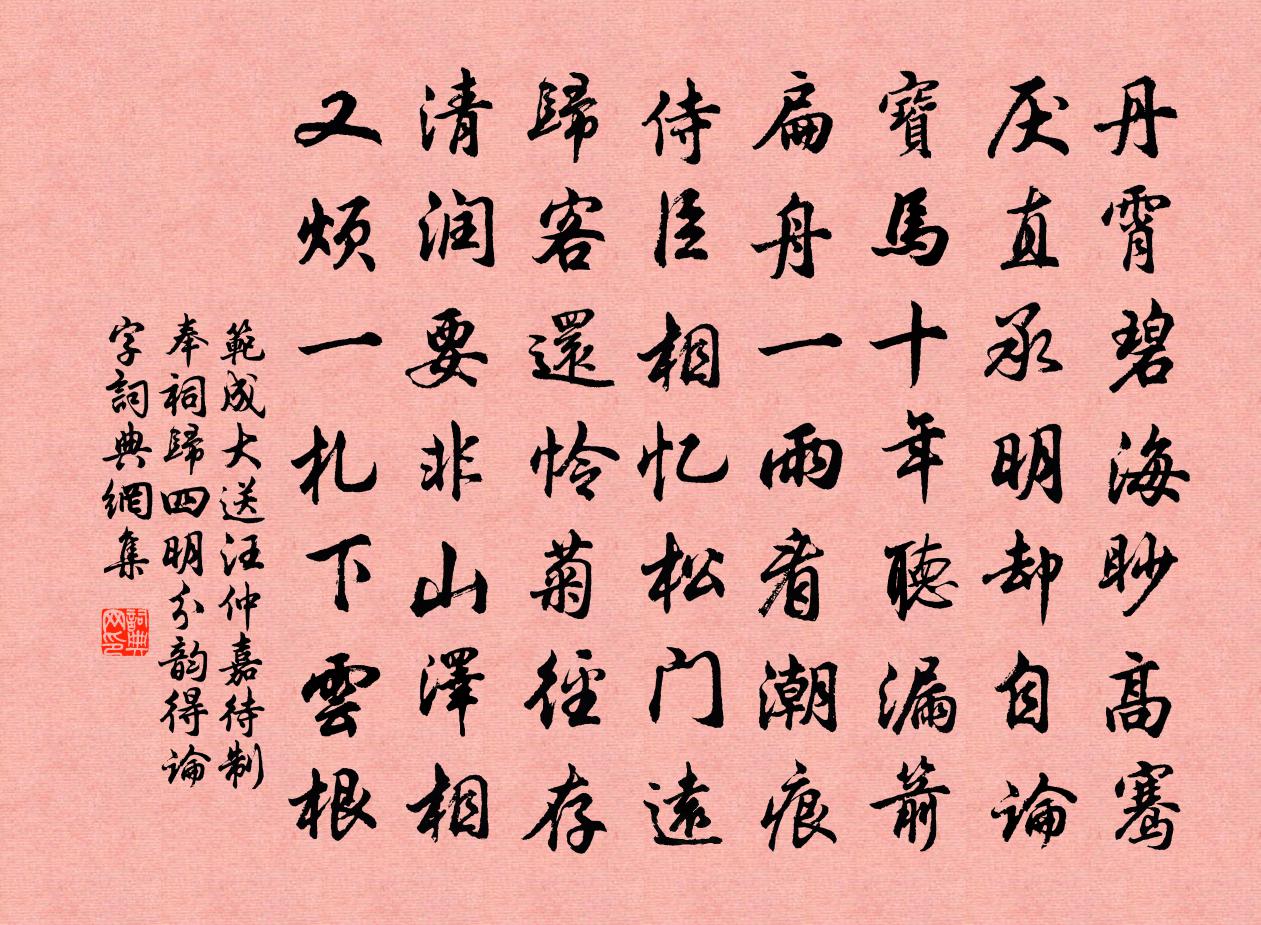 丹霄碧海眇高骞
厌直承明却自论
寶馬十年聽漏箭
扁舟一雨看潮痕
侍臣相忆松门遠
歸客還怜菊徑存
清润要非山澤相
又烦一札下雲根
範成大送汪仲嘉待制
奉祠歸四明分韵得论
字詞典網集
詞典网印